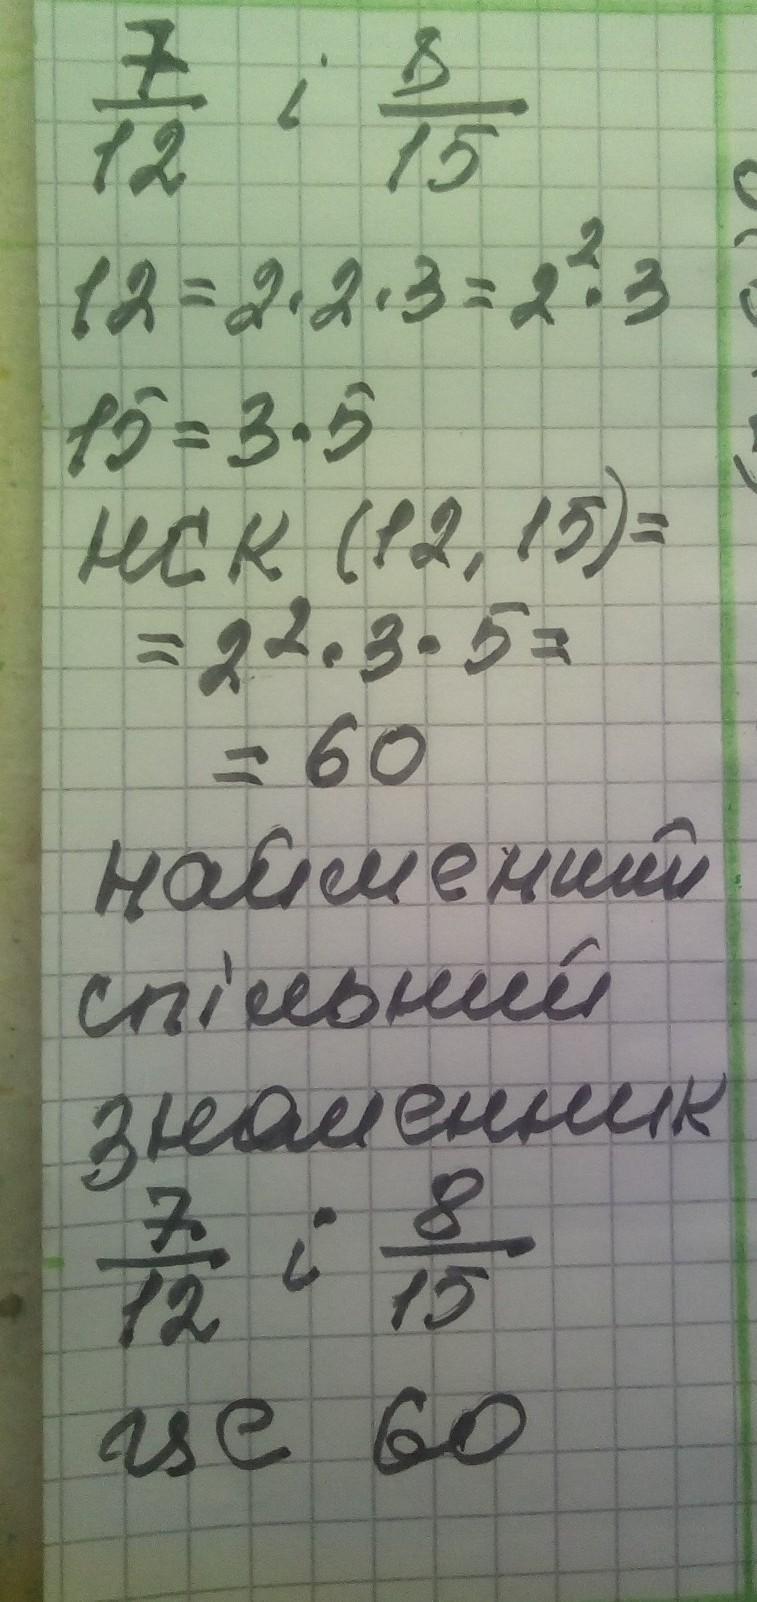 7/12 і 8/15
12 = 2 · 2 · 3 = 2² · 3
15 = 3 · 5
НСК (12, 15) =
= 2² · 3 · 5 =
= 60
найменший
спільний
знаменник
7/12 і 8/15
це 60